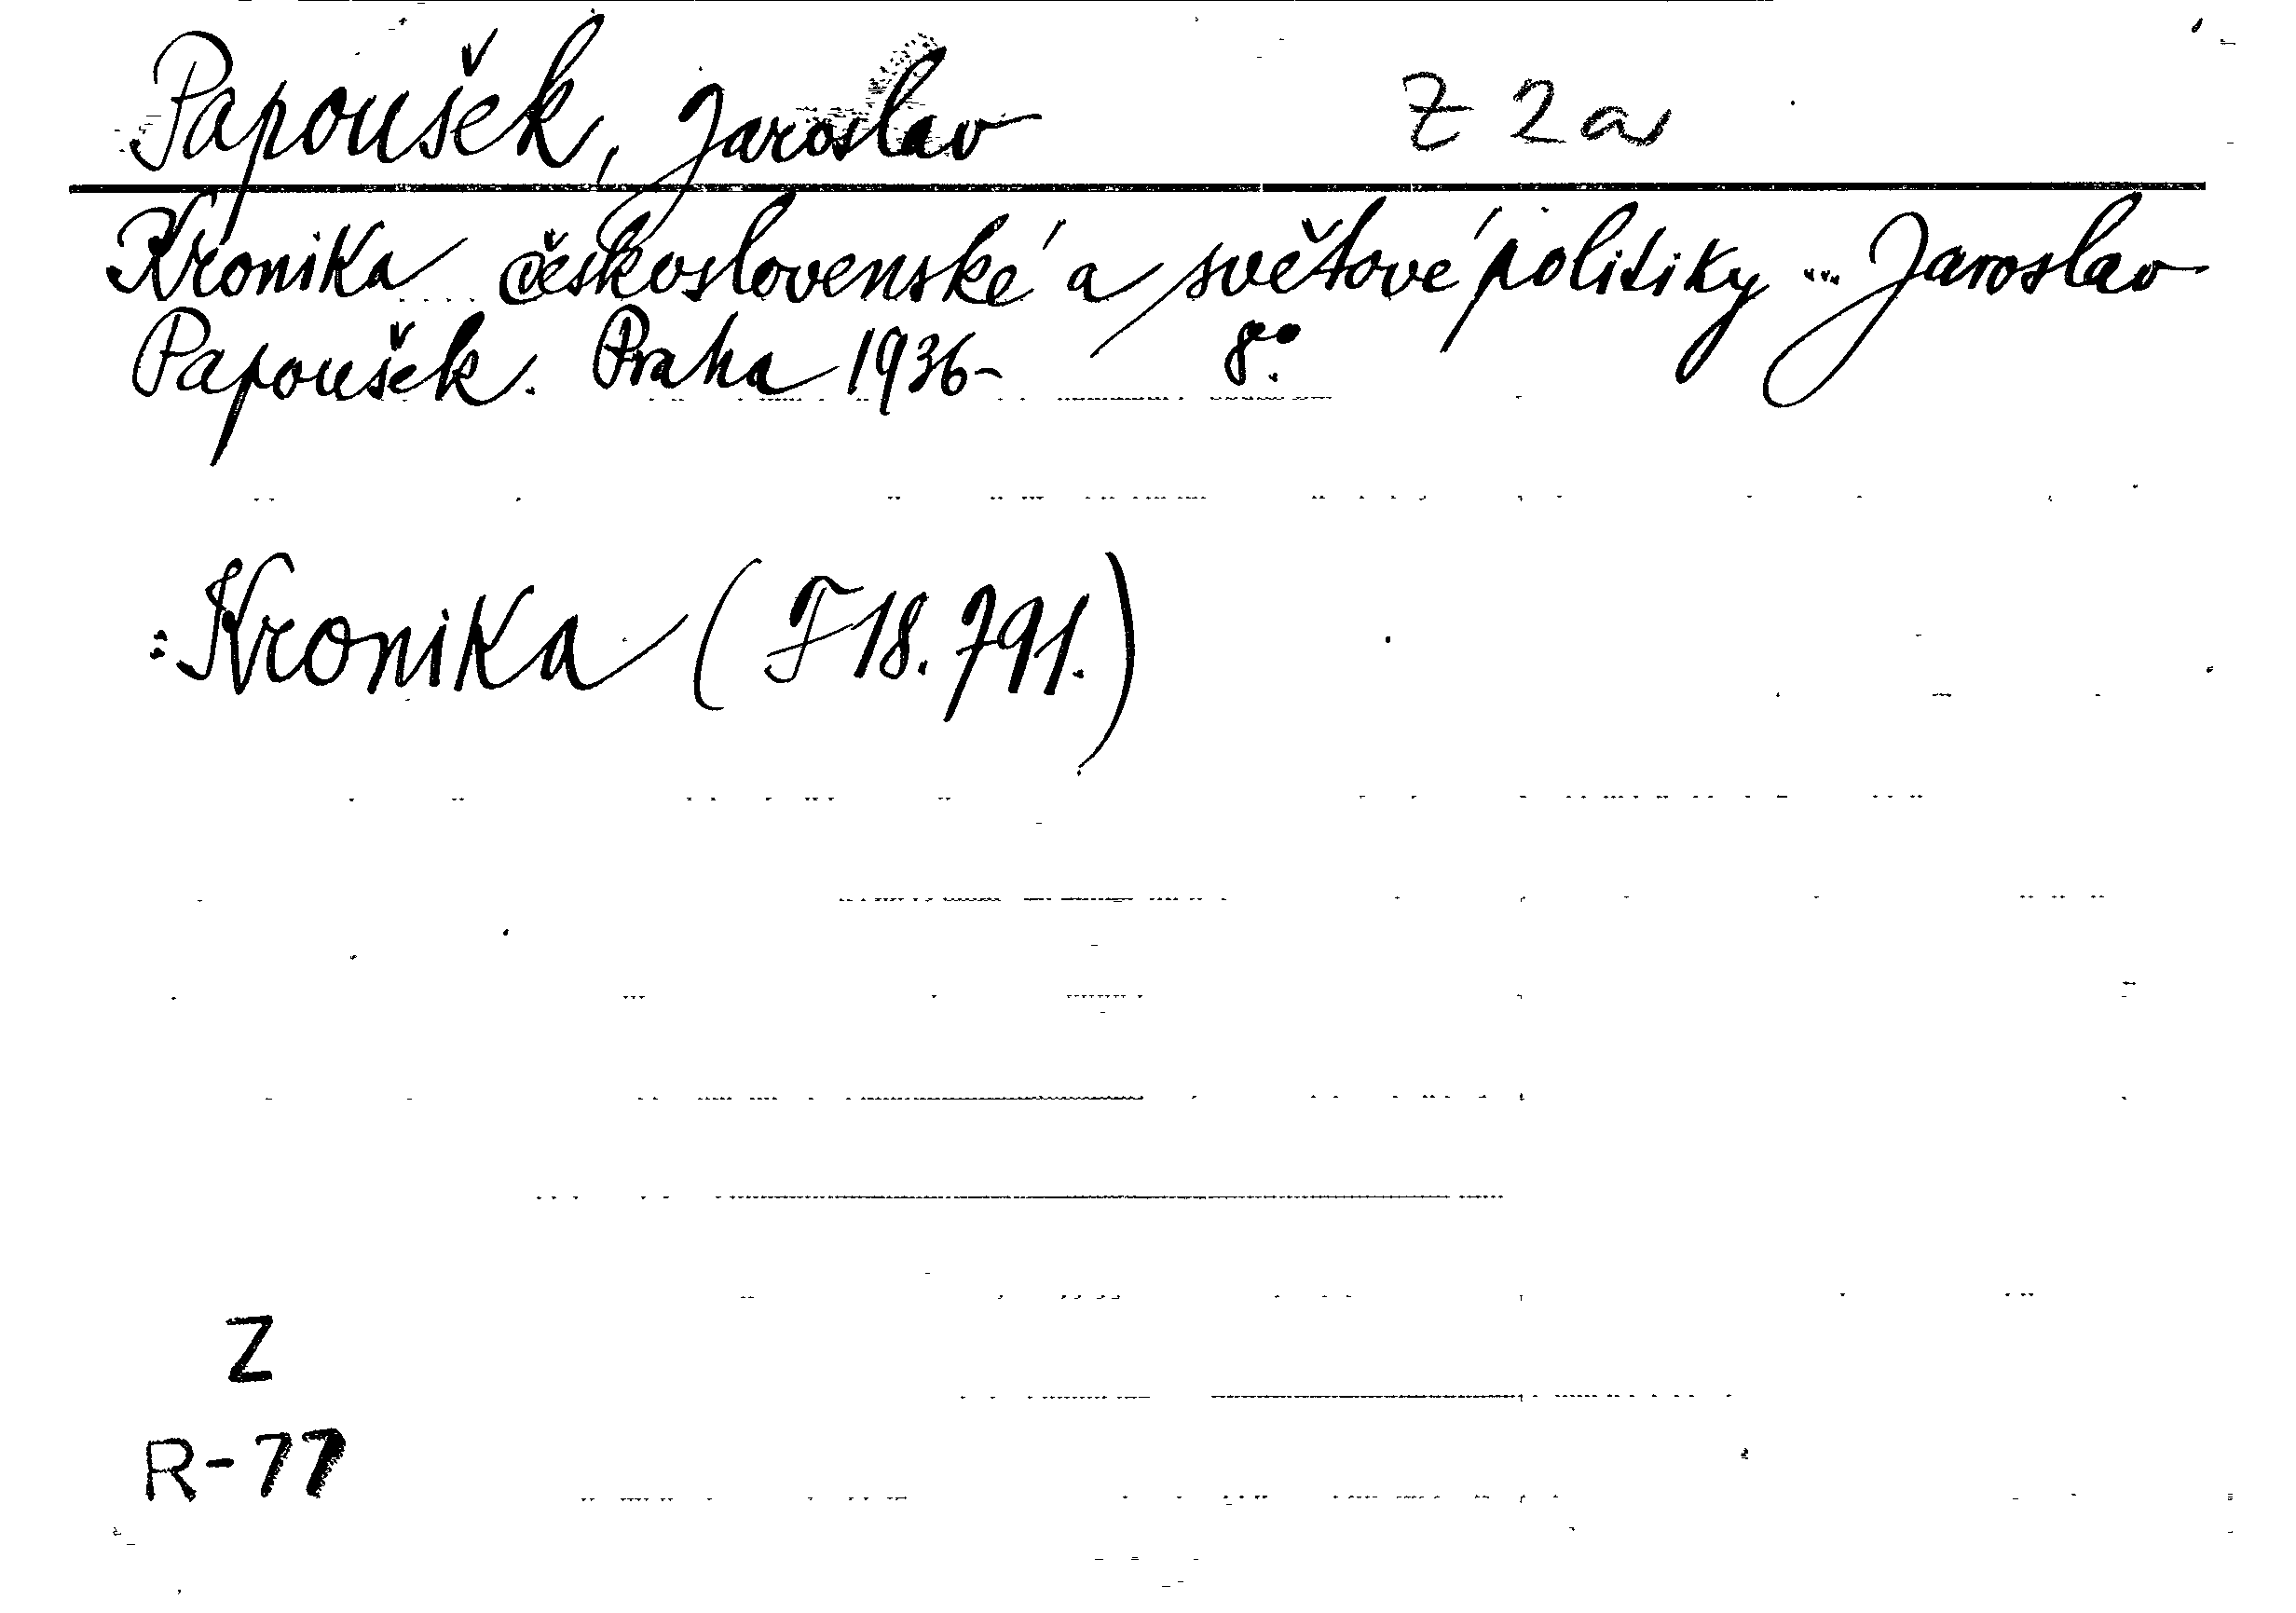 Papoušek, Jaroslav Z 2a
Kronika československé a světové politiky ... Jaroslav
Papoušek. Praha 1936- 8º.
: Kronika (F 18.791.)
Z
R-77